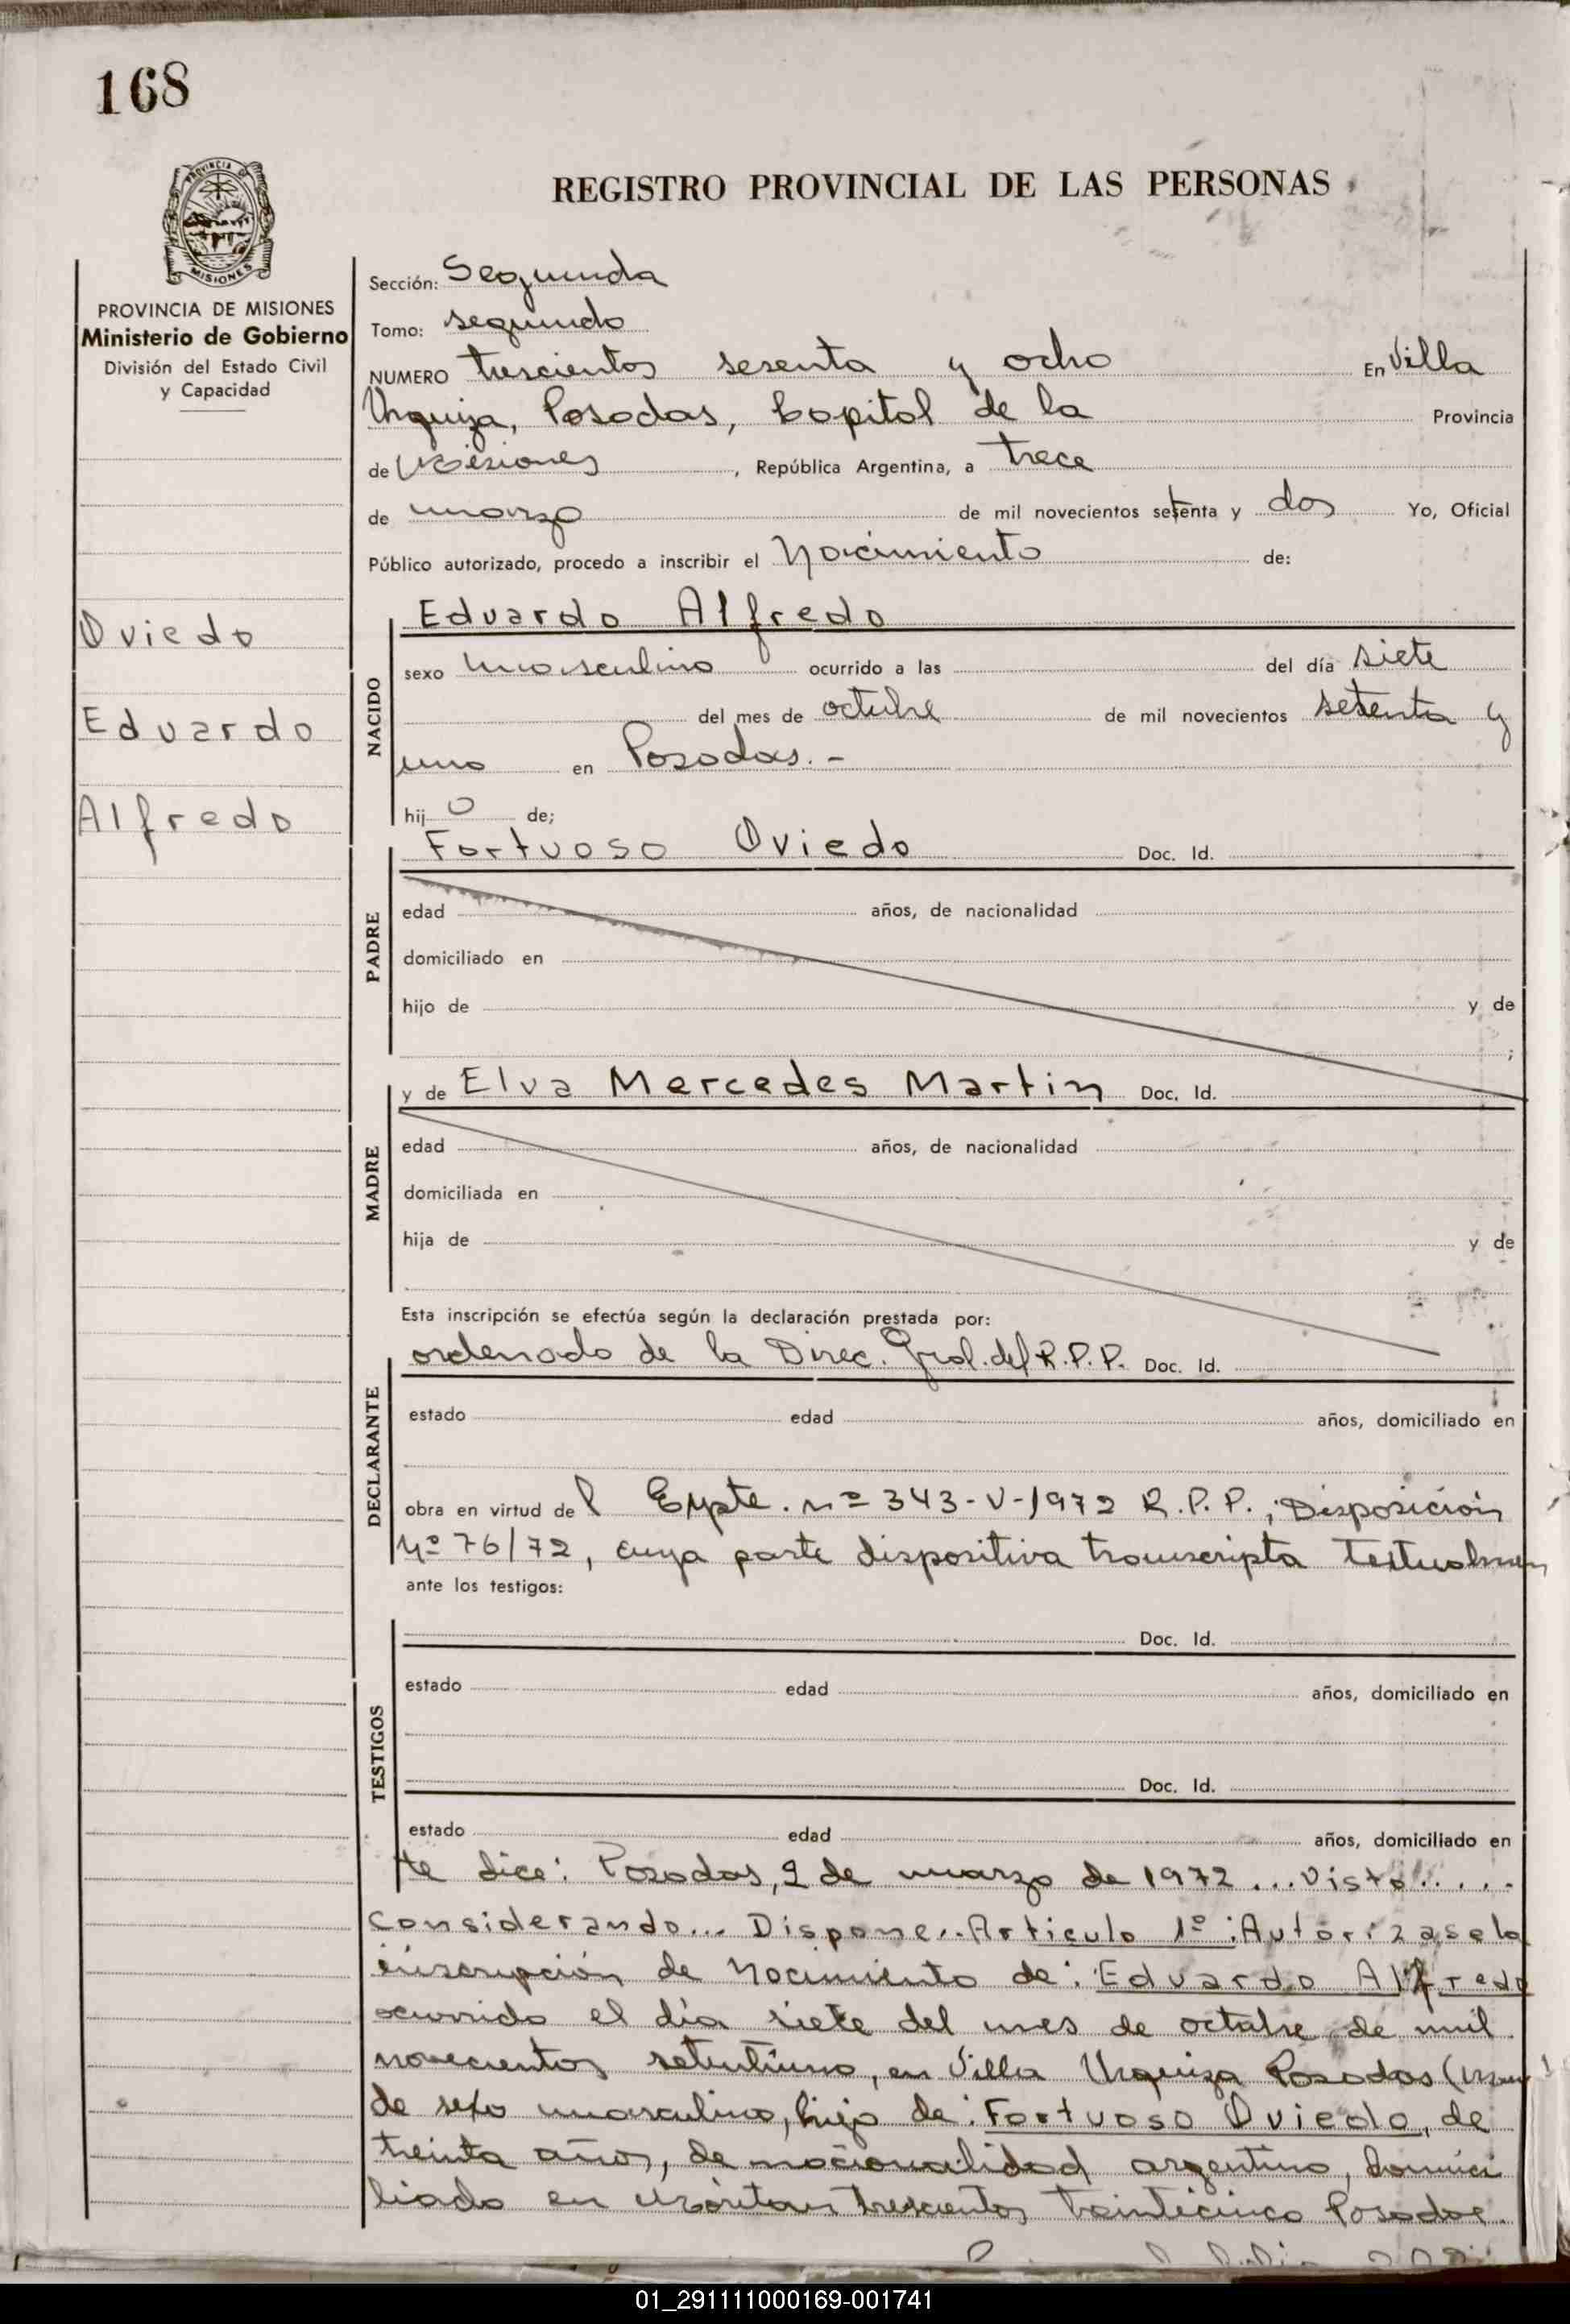 168
PROVINCIA DE
MISIONES
REGISTRO PROVINCIAL DE LAS PERSONAS
PROVINCIA DE MISIONES
Ministerio de Gobierno
División del Estado Civil
y Capacidad
Oviedo
Eduardo
Alfredo
Sección: Segunda
Tomo: segundo
NUMERO trescientos sesenta y ocho En Villa
Urquiza, Posadas, Capital de la Provincia
de Misiones, República Argentina, a trece
de marzo de mil novecientos setenta y dos Yo, Oficial
Público autorizado, procedo a inscribir el Nacimiento de:
NACIDO
Eduardo Alfredo
sexo masculino ocurrido a las del día siete
del mes de octubre de mil novecientos setenta y
uno en Posadas.-
hijo de;
PADRE
Fortuoso Oviedo Doc. Id.
edad años, de nacionalidad
domiciliado en
hijo de y de
;
MADRE
y de Elva Mercedes Martin Doc. Id.
edad años, de nacionalidad
domiciliada en
hija de y de
Esta inscripción se efectúa según la declaración prestada por:
DECLARANTE
ordenado de la Direc. Gral. del R.P.P. Doc. Id.
estado edad años, domiciliado en
obra en virtud del Expte. nº 343-V-1972 R.P.P., Disposición
Nº 76/72, cuya parte dispositiva transcripta textualmen
ante los testigos:
TESTIGOS
Doc. Id.
estado edad años, domiciliado en
Doc. Id.
estado edad años, domiciliado en
te dice: Posadas, 2 de marzo de 1972 ... Visto.....
Considerando... Dispone.. Articulo 1º: Autorizase la
inscripción de Nacimiento de: Eduardo Alfredo
ocurrido el día siete del mes de octubre de mil
novecientos setentiuno, en Villa Urquiza Posadas
de sexo masculino, hijo de: Fortuoso Oviedo, de
treinta años, de nacionalidad argentino, domici
liado en trescientos treinticinco Posadas.
01_291111000169-001741